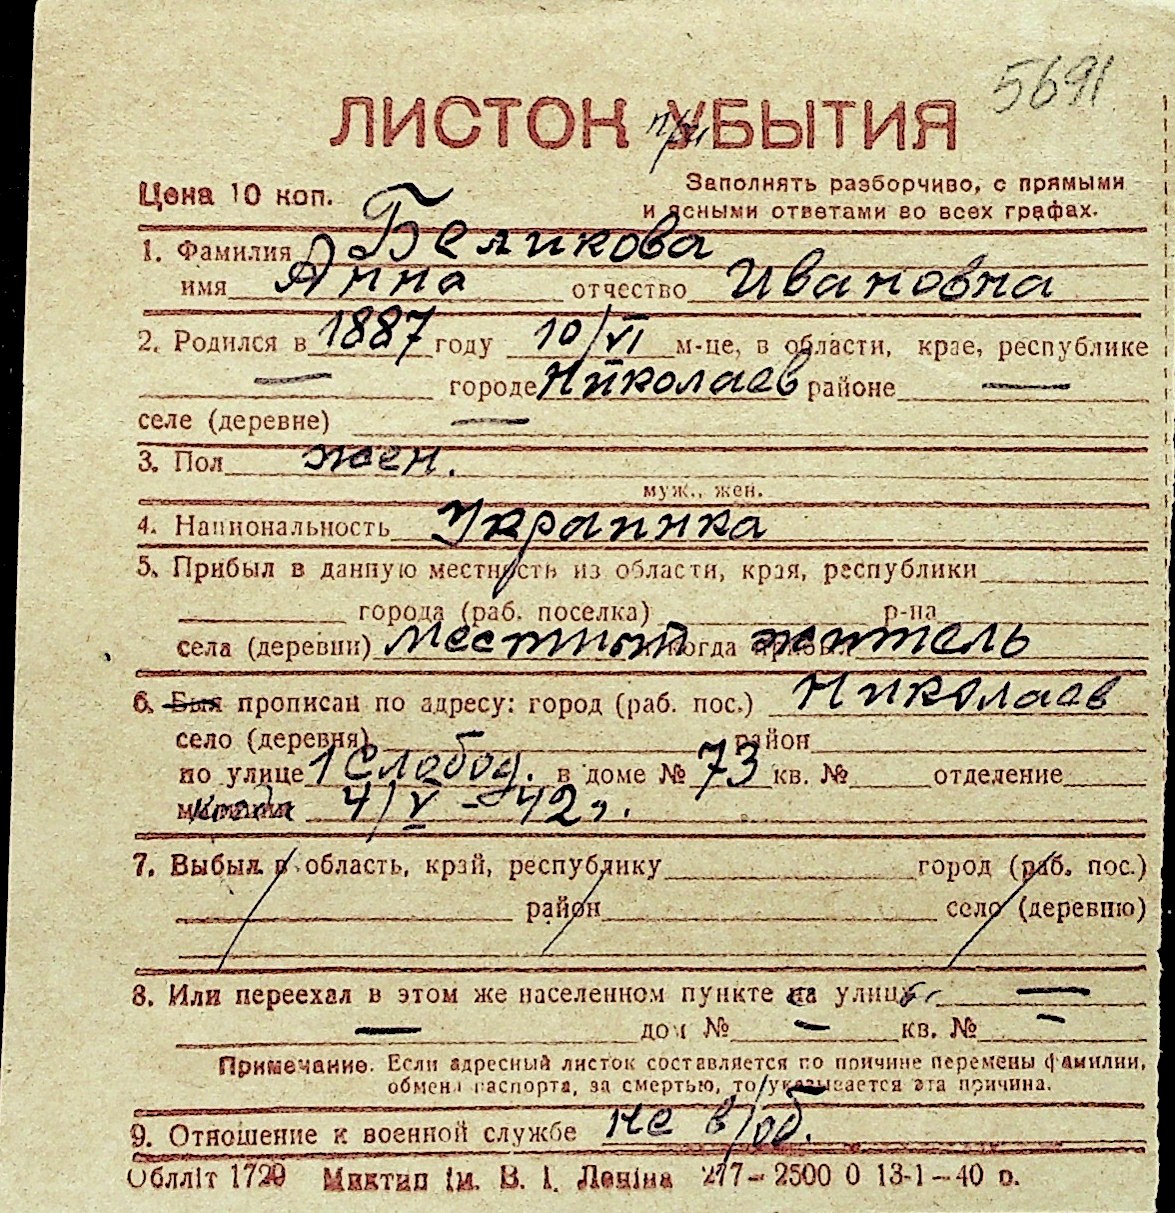 5691
ЛИСТОК при УБЫТИЯ
Цена 10 коп.
Заполнять разборчиво, с прямыми
и ясными ответами во всех графах.
1. Фамилия Беликова
имя Анна отчество Ивановна
2. Родился в 1887 году 10/VI м-це, в области, крае, республике
— городе Николаев районе —
селе (деревне) —
3. Пол жен.
муж., жен.
4. Национальность Украинка
5. Прибыл в данную местность из области, края, республики
города (раб. поселка) р-на
села (деревни) местный когда прибыл житель
6. Был прописан по адресу: город (раб. пос.) Николаев
село (деревня) район
по улице 1 Слобод. в доме № 73 кв. № отделение
милиции когда 4/V - 42 г.
7. Выбыл в область, край, республику город (раб. пос.)
район село (деревню)
8. Или переехал в этом же населенном пункте на улицу —
— дом № — кв. № -
Примечание. Если адресный листок составляется по причине перемены фамилии,
обмена паспорта, за смертью, то указывается эта причина.
9. Отношение к военной службе не в/об.
Обллiт 1729 Миктип iм. В. I. Ленiна 277-2500 0 13-1-40 р.